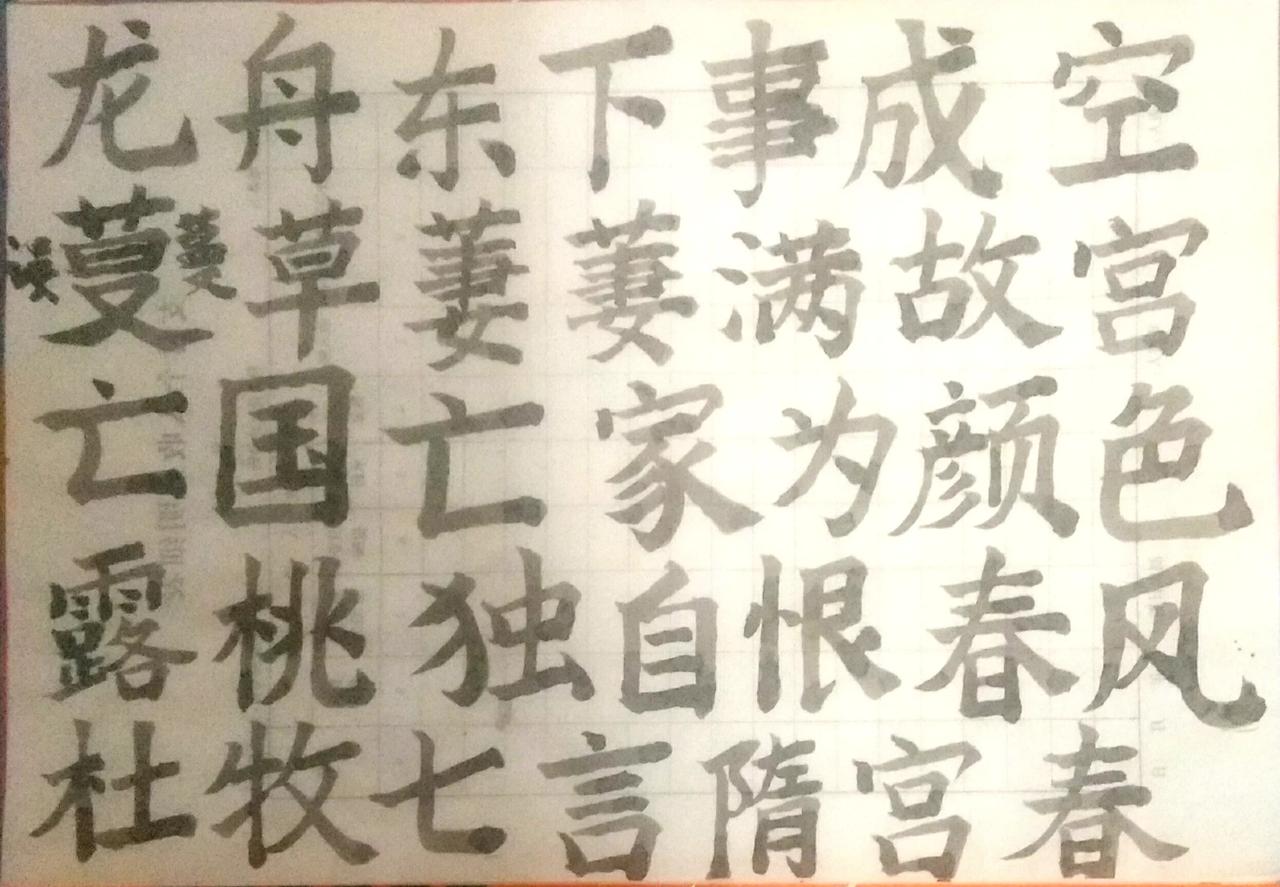 龙舟东下事成空
误蔓蔓草萋萋满故宫
亡国亡家为颜色
露桃独自恨春风
杜牧七言隋宫春